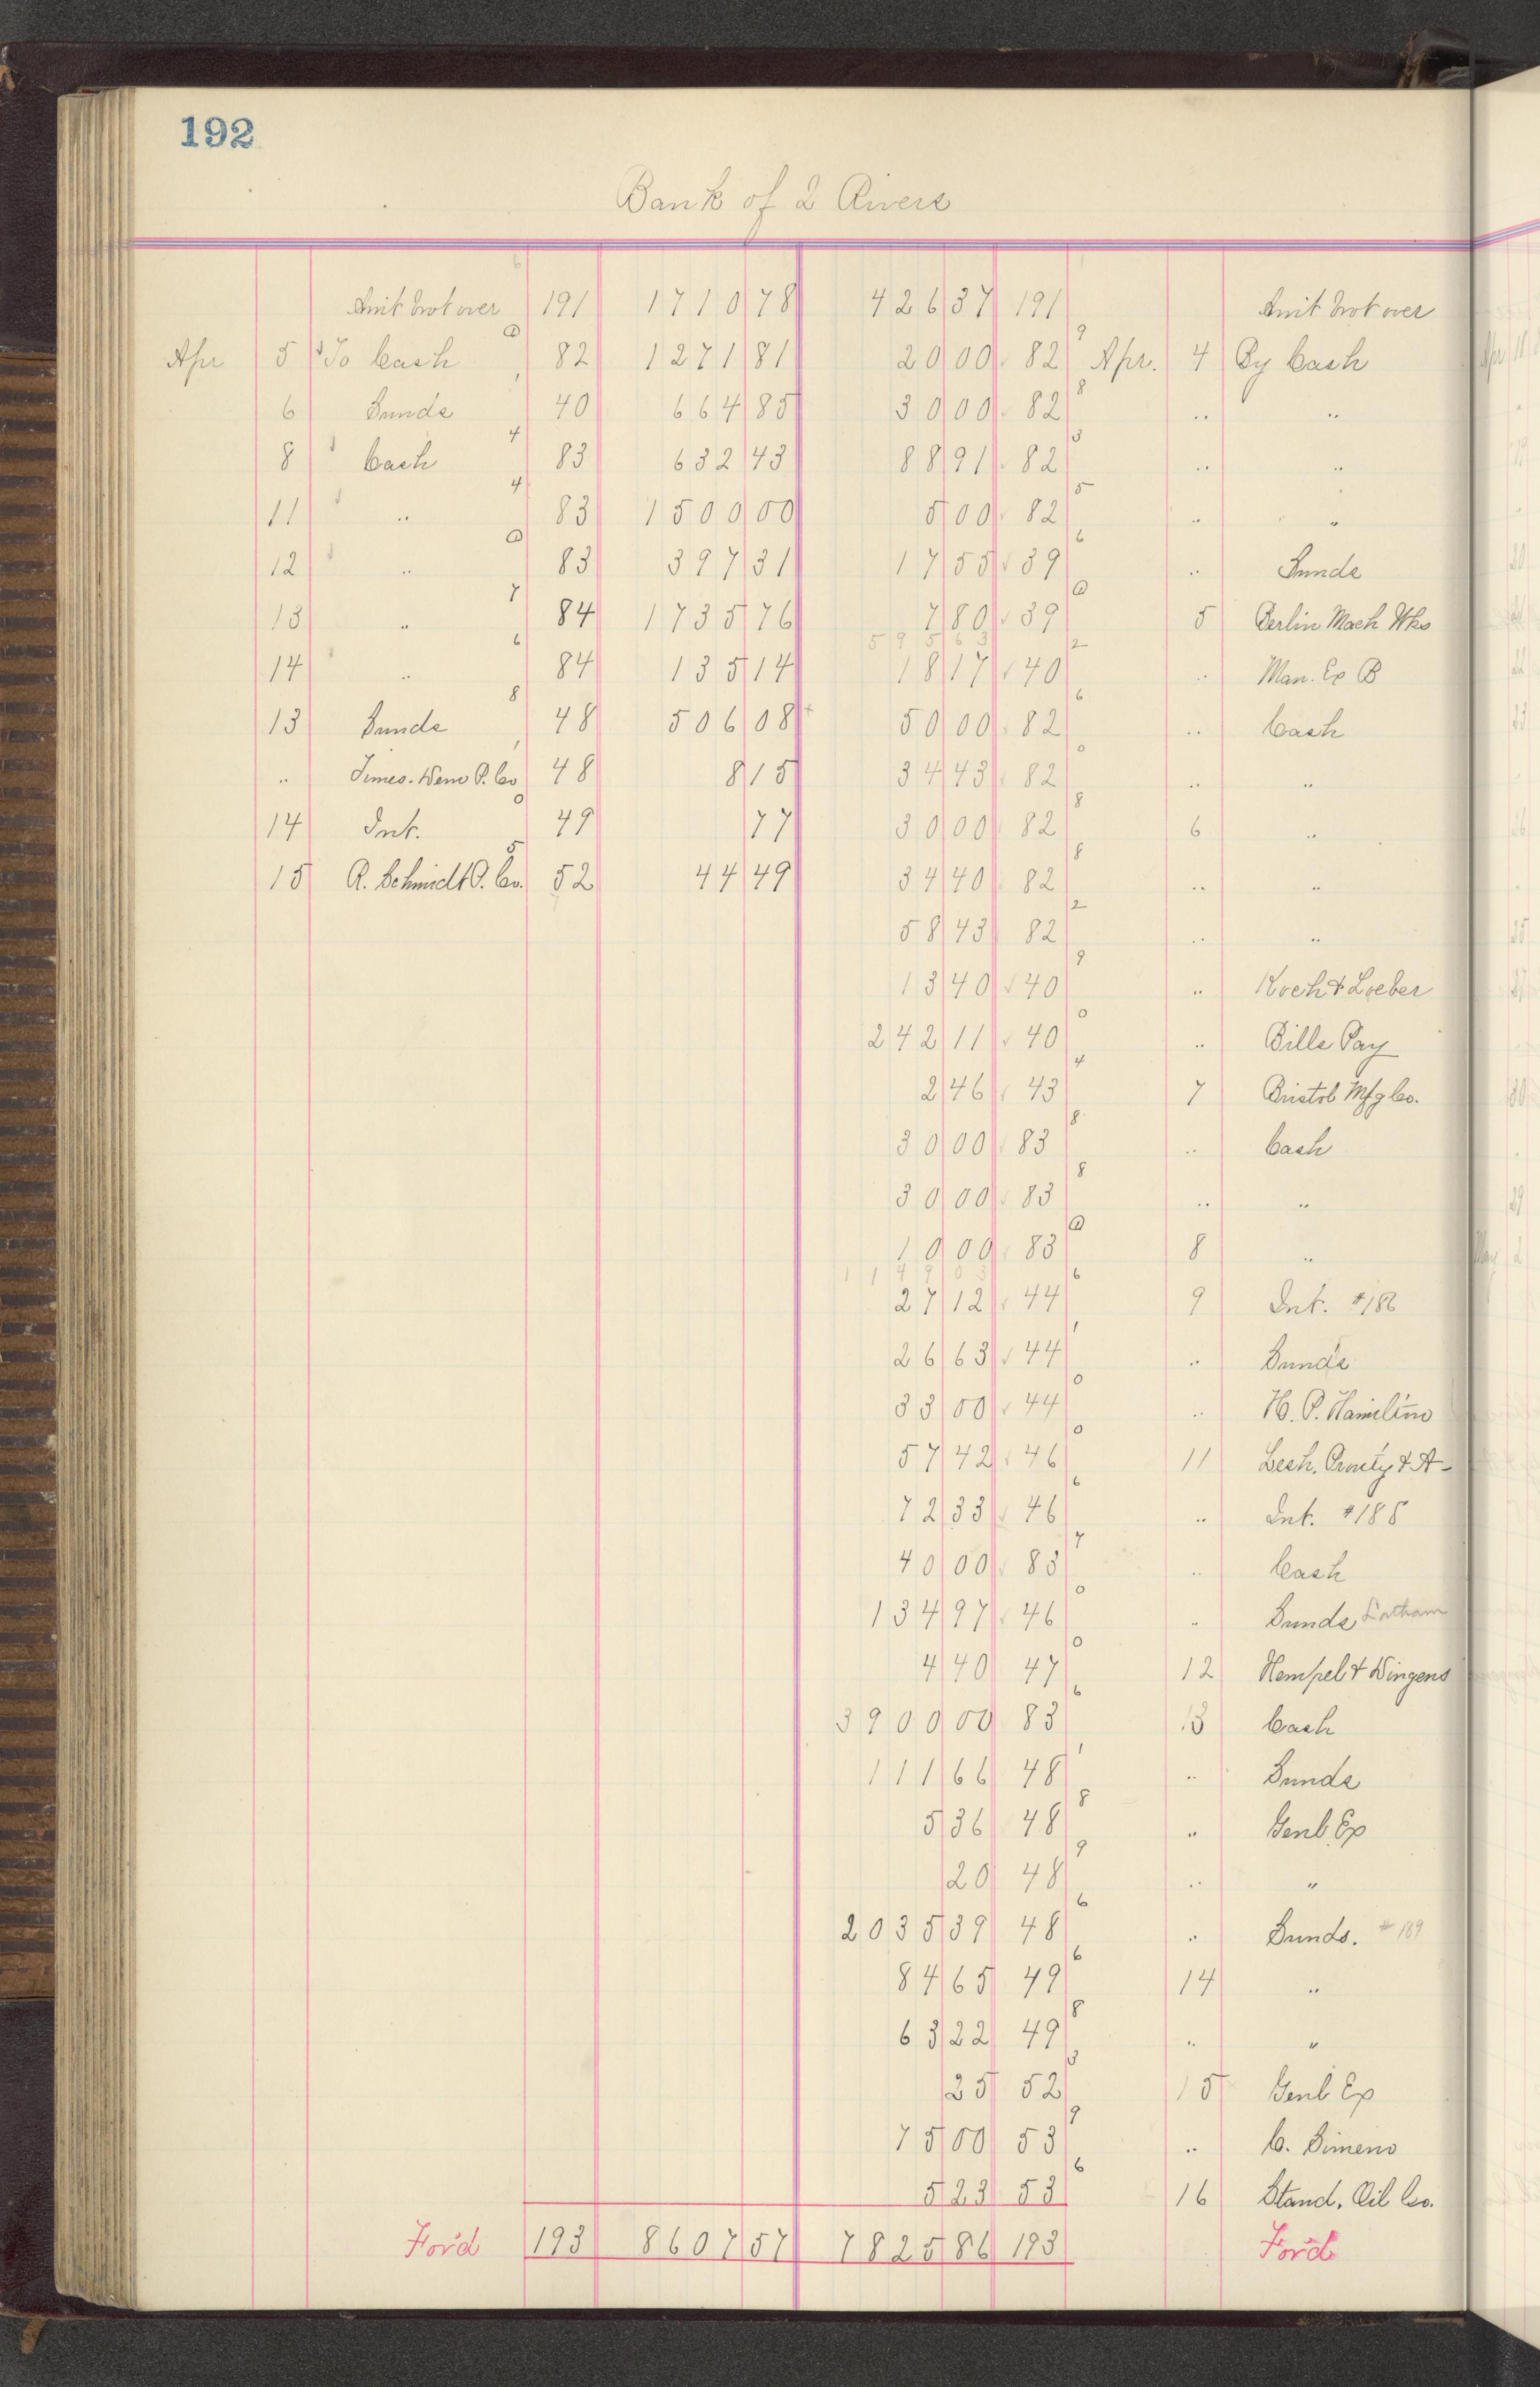 192
Bank of 2 Rivers
Amt brot over 191 1710 78 426 37 191 Amt brot over
Apr 5 To Cash 82 1271 81 20 00 82 Apr. 4 By Cash
6 Sunds 40 664 85 30 00 82 .. ..
8 Cash 83 632 43 88 91 82 .. ..
11 .. 83 1500 00 5 00 82 .. "
12 .. 83 397 31 17 55 39 .. Sunds
13 .. 84 1735 76 7 80 39 5 Berlin Mach Wks
59563
14 .. 84 135 14 18 17 40 .. Man. Ex B
13 Sunds 48 506 08 50 00 82 .. Cash
.. Times. News P. Co 48 8 15 34 43 82 .. ..
14 Int. 49 77 30 00 82 6 ..
15 R. Schmidt P. Co. 52 44 49 34 40 82 .. ..
58 43 82 .. ..
13 40 40 .. Koch & Loeber
242 11 40 .. Bills Pay
2 46 43 7 Bristol Mfg Co.
30 00 83 .. Cash
30 00 83 .. ..
10 00 83 8 ..
114903
27 12 44 9 Int. #186
26 63 44 .. Sunds
33 00 44 .. H. P. Hamilton
57 42 46 11 Lesh, Prouty & A-
72 33 46 .. Int. #188
40 00 83 .. Cash
134 97 46 .. Sunds Latham
4 40 47 12 Hempel & Wingens
3900 00 83 13 Cash
111 66 48 .. Sunds
5 36 48 .. Genl Ex
20 48 .. "
2035 39 48 .. Sunds. #189
84 65 49 14 ..
63 22 49 .. "
25 52 15 Genl Ex
75 00 53 .. C. Simens
5 23 53 16 Stand. Oil Co.
For'd 193 8607 57 7825 86 193 For'd